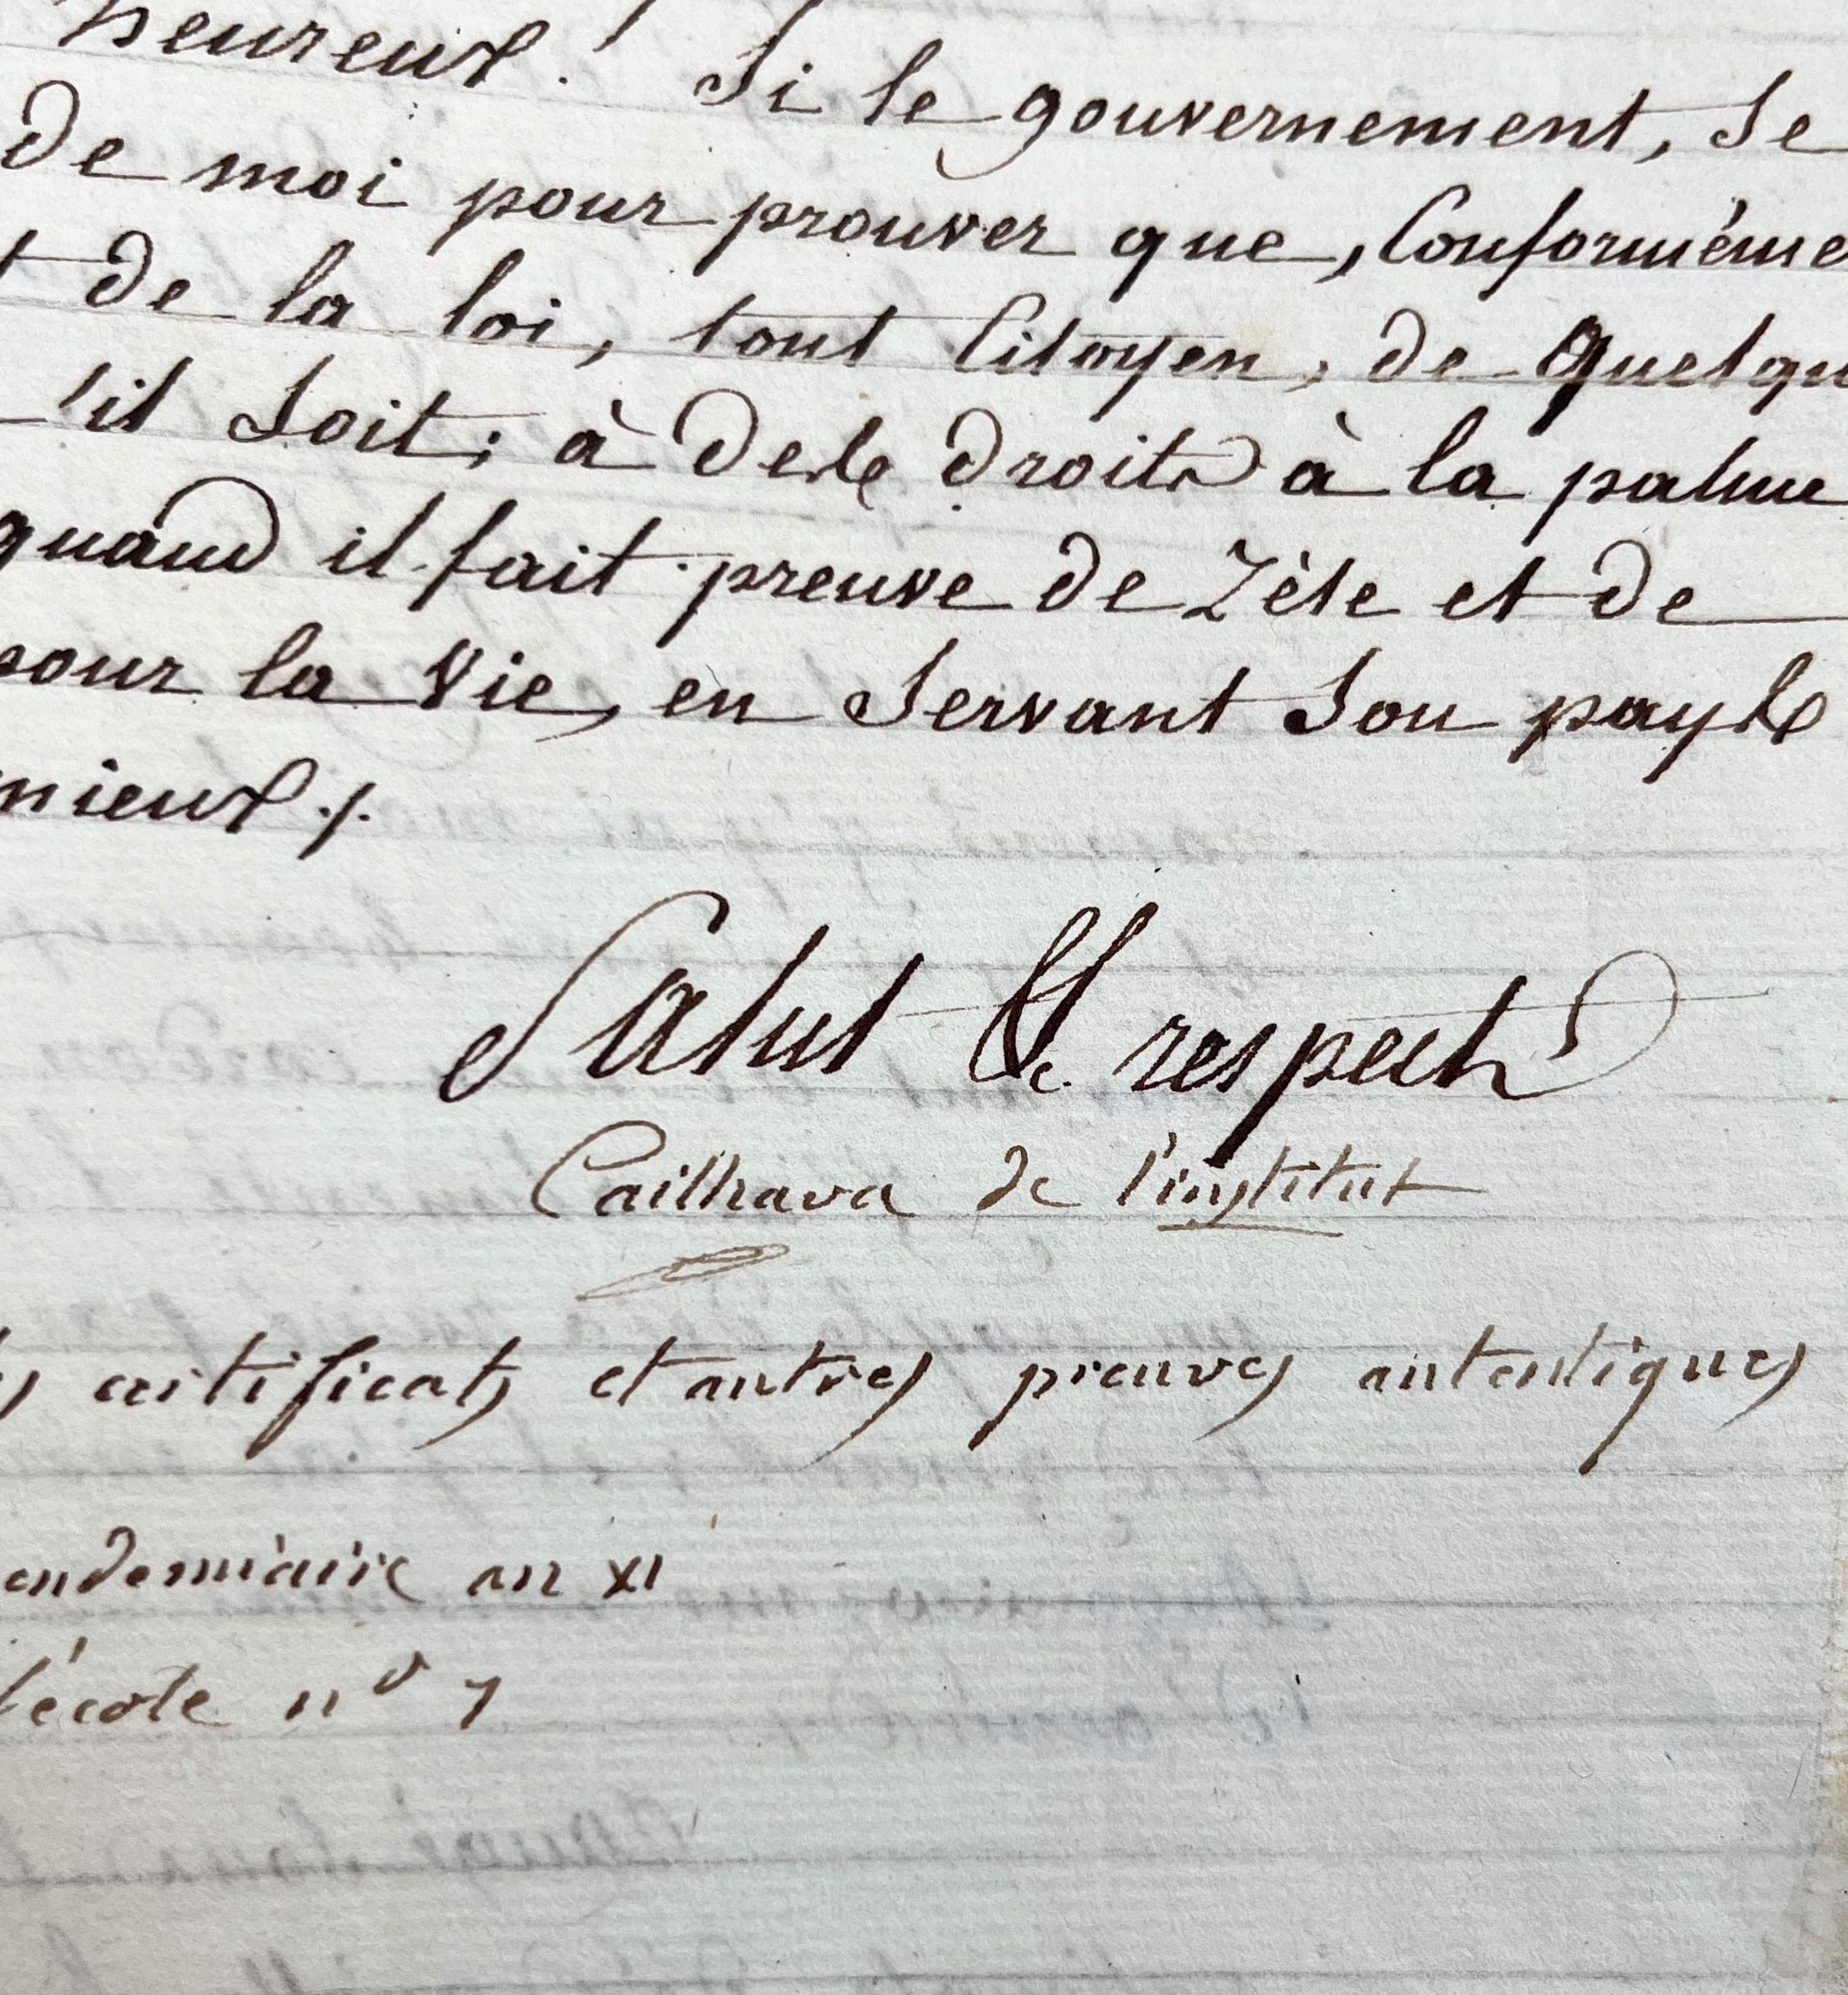 heureux ! Si le gouvernement, Se
De moi pour prouver que, Conforméme
t de la loi, tout Citoyen, de quelqu
'il Soit; à des droits à la palme
quand il fait preuve de Zèle et de
pour la Vie, en Servant Son pays
mieux ./.
Salut & respect
Cailhava de l'institut
certificats et autres preuves autentiques
endemiaire an XI
l'école n° 7